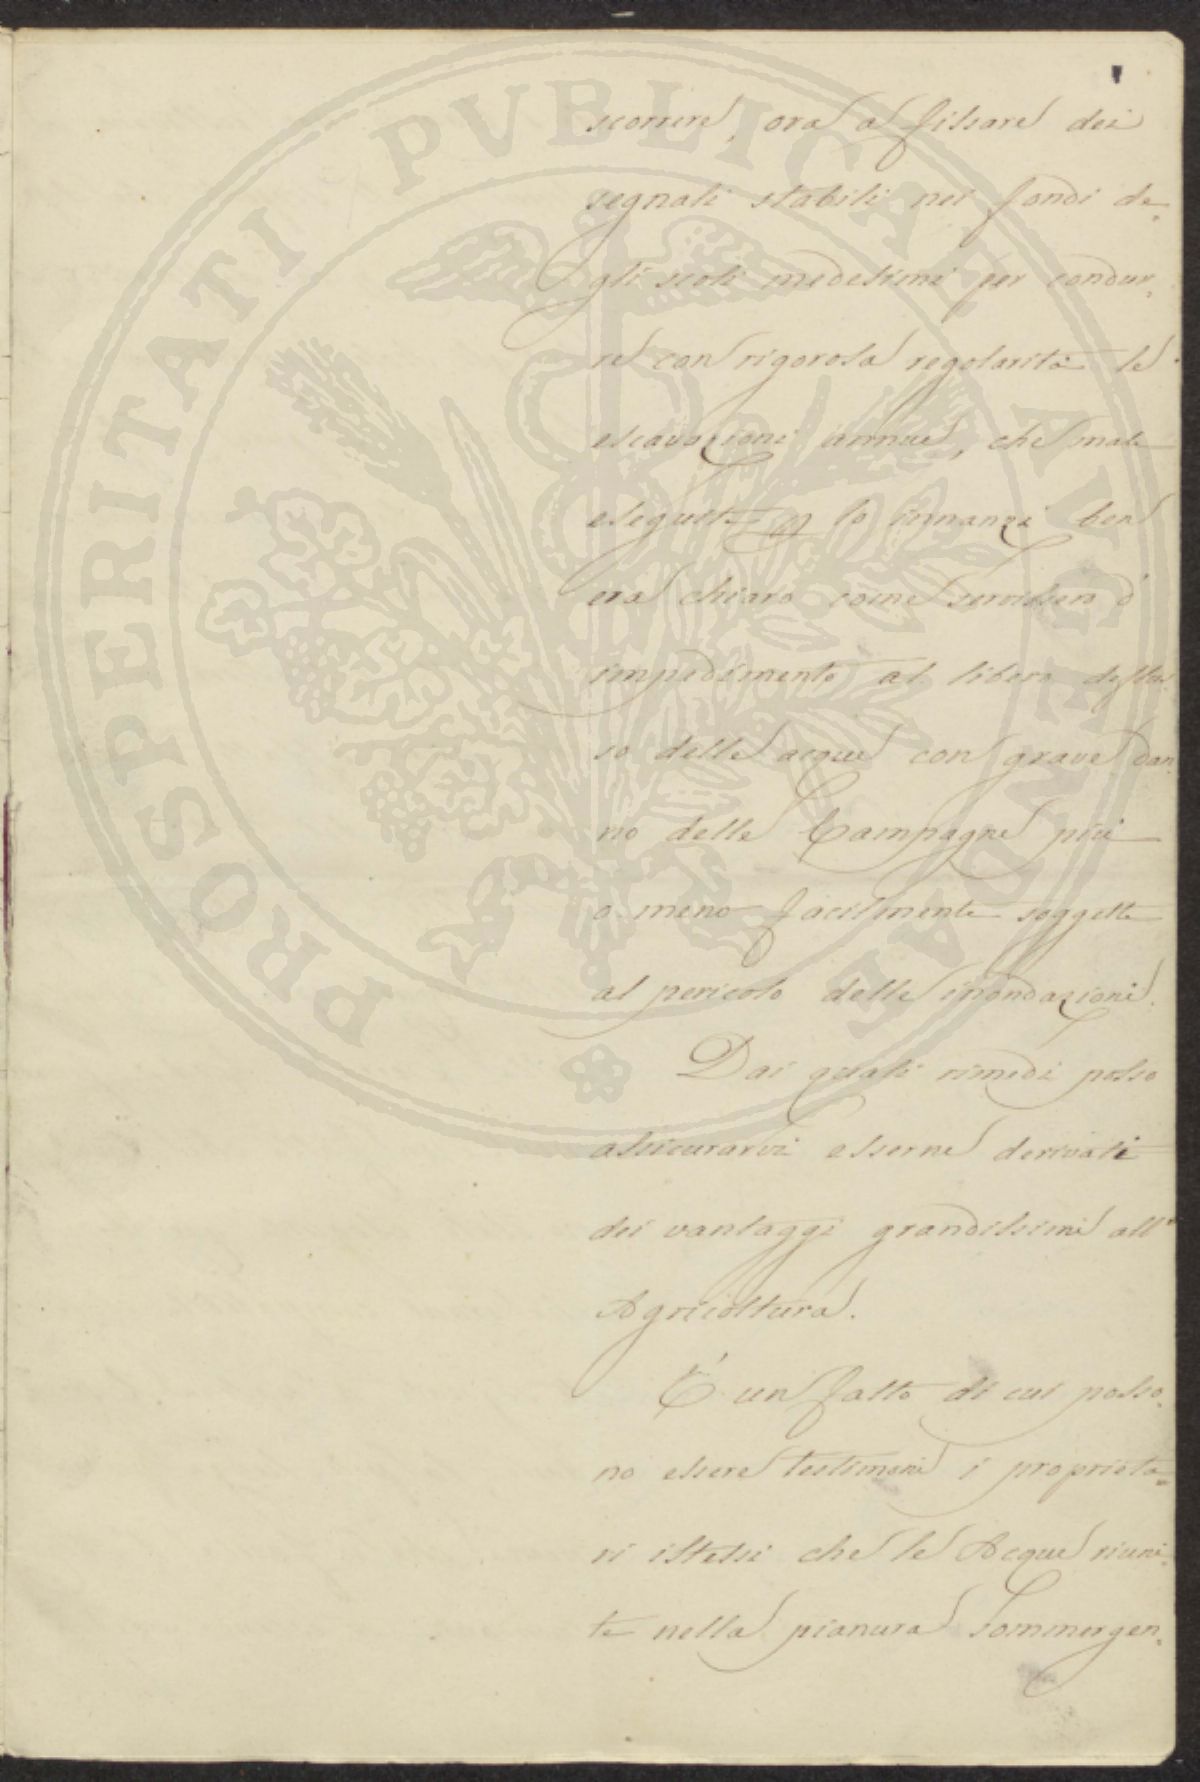 PROSPERITATI PVBLICAE AVGENDAE
scorrere, ora a fissare dei
segnali stabili nei fondi de=
gli scoli medesimi per condur=
re con rigorosa regolarità le
escavazioni annue, che male
eseguite p lo innanzi ben
era chiaro come servissero d'
impedimento al libero deflus=
so delle acque con grave dan=
no delle Campagne più
o meno facilmente soggette
al pericolo delle inondazioni.
Dai quali rimedi posso
assicurarvi esserne derivati
dei vantaggi grandissimi all'
Agricoltura.
È un fatto di cui posso=
no essere testimoni i proprieta=
ri istessi che le Acque riuni=
te nella pianura sommergen=